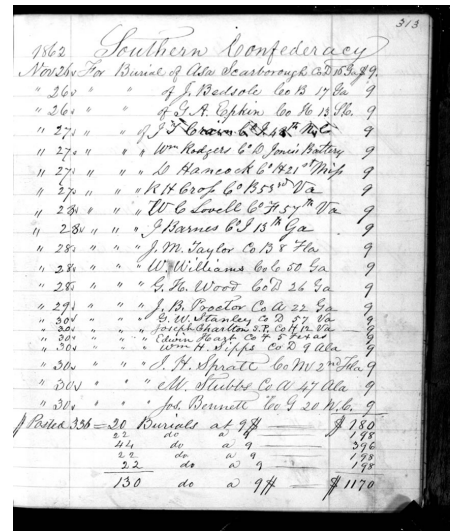 313
1862 Southern Confederacy
Nov 26 For Burial of Asa Scarborough Co D 15 Ga $9.
" 26 of J. Bedsole Co B 17 Ga 9
" 26 of G. A. Epkin Co H 13 9
" 27 " " of J T Co I 48th N.C 9
" 27 " " " Wm Rodgers Co D Jones Battery 9
" 27 " " " D Hancock Co H 21st Miss 9
" 27 " " " R H Cross Co B 53rd Va 9
" 28 " " " W C Lovell Co F 57th Va 9
" 28 " " " J Barnes Co I 13th Ga 9
" 28 " " " J. M. Taylor Co B 8 Fla 9
" 28 " " " W. Williams Co C 50 Ga 9
" 28 " " " G. H. Wood Co D 26 Ga 9
" 29 " " " J. B. Proctor Co A 22 Ga 9
" 30 " " " G. W. Stanley Co D 57 Va 9
" 30 " " " Joseph Charlton Co H 12 Va 9
" 30 " " " Edwin Co F 5 Texas 9
" 30 " " " Wm H. Sipps Co D 9 Ala 9
" 30 " " " J. H. Spratt Co M 2nd Fla 9
" 30 " " " M. Stubbs Co A 47 Ala 9
" 30 " " " Jos. Bennett Co G 20 N.C. 9
Posted 336 = 20 Burials at 9$ $180
22 do a 9 198
44 do a 9 396
22 do a 9 198
22 do a 9 198
130 do a 9$ $1170